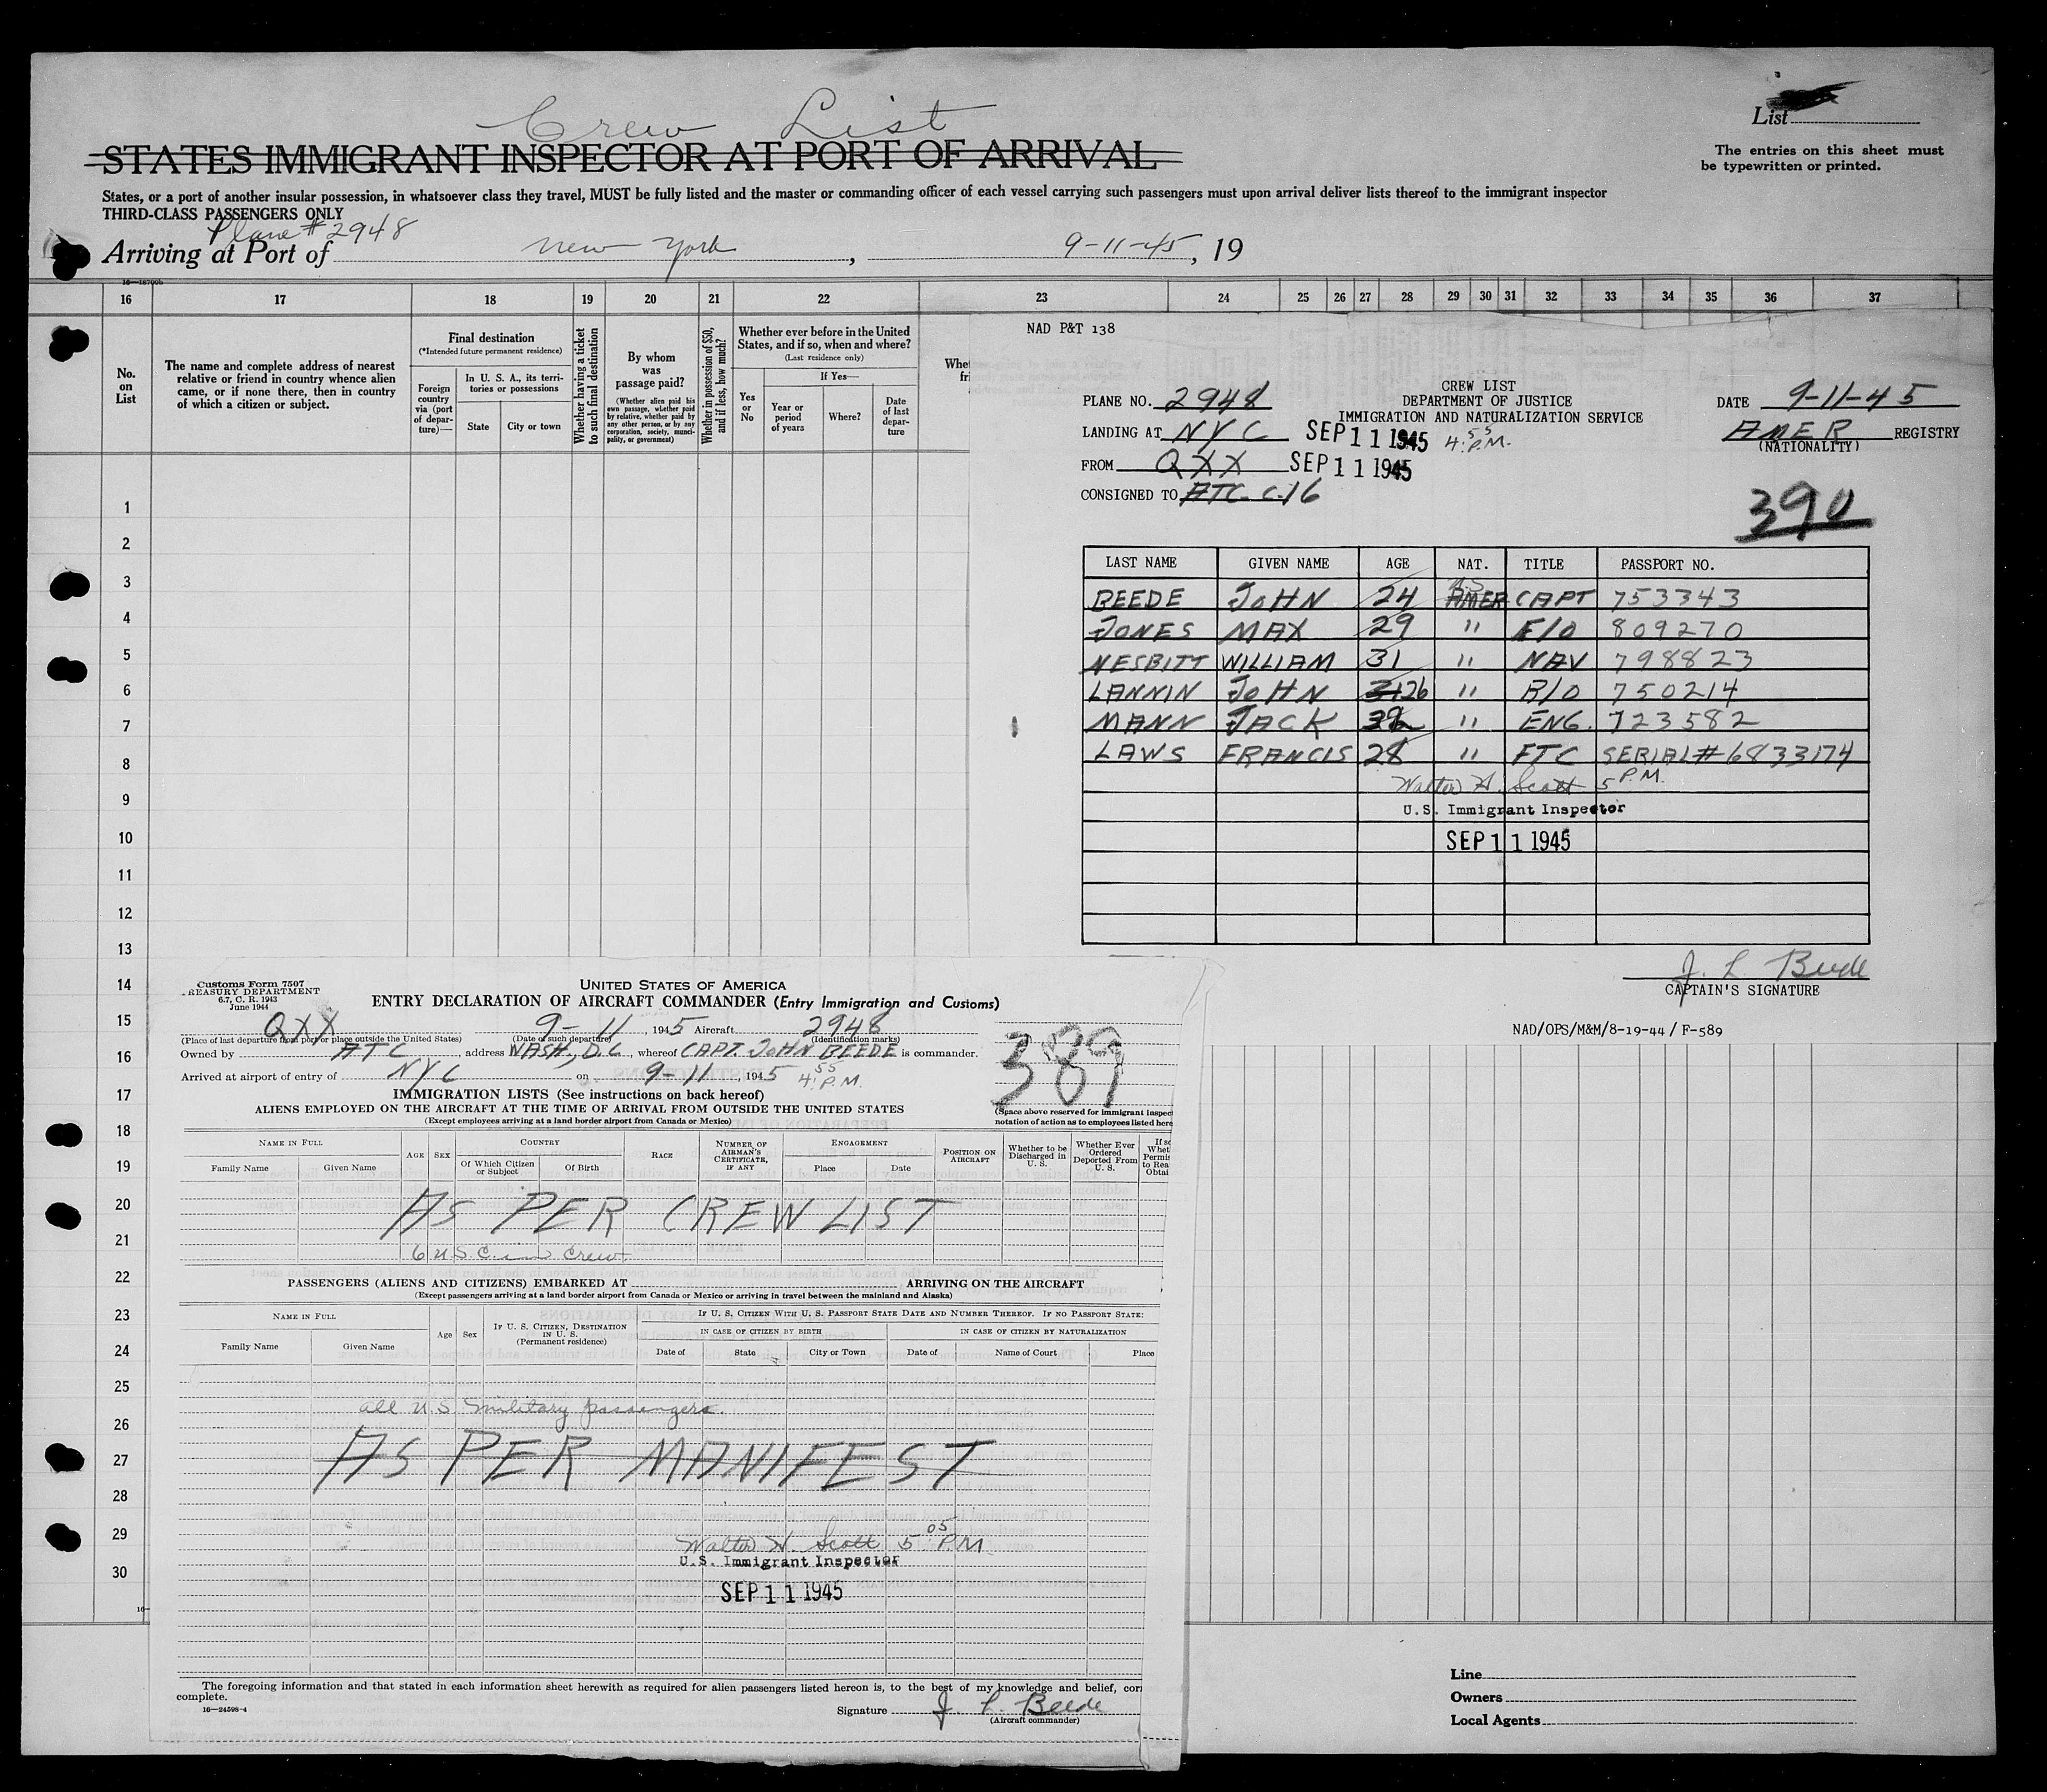 Crew List
List
STATES IMMIGRANT INSPECTOR AT PORT OF ARRIVAL
The entries on this sheet must
be typewritten or printed.
States, or a port of another insular possession, in whatsoever class they travel, MUST be fully listed and the master or commanding officer of each vessel carrying such passengers must upon arrival deliver lists thereof to the immigrant inspector
THIRD-CLASS PASSENGERS ONLY
Plane # 2948
Arriving at Port of New York, 9-11-45, 19
16 17 18 19 20 21 22 23 24 25 26 27 28 29 30 31 32 33 34 35 36 37
No. on List
The name and complete address of nearest
relative or friend in country whence alien
came, or if none there, then in country
of which a citizen or subject.
Final destination
(*Intended future permanent residence)
Foreign country via (port of departure)—
In U. S. A., its territories or possessions
State
City or town
Whether having a ticket to such final destination
By whom was passage paid?
(Whether alien paid his own passage, whether paid by relative, whether paid by any other person, or by any corporation, society, municipality, or government)
Whether in possession of $50, and if less, how much?
Whether ever before in the United
States, and if so, when and where?
(Last residence only)
Yes or No
If Yes—
Year or period of years
Where?
Date of last departure
1
2
3
4
5
6
7
8
9
10
11
12
13
14
15
16
17
18
19
20
21
22
23
24
25
26
27
28
29
30
NAD P&T 138
CREW LIST
DEPARTMENT OF JUSTICE
IMMIGRATION AND NATURALIZATION SERVICE
PLANE NO. 2948
DATE 9-11-45
LANDING AT NYC SEP 11 1945 4:55 P.M.
AMER REGISTRY
(NATIONALITY)
FROM QXX SEP 11 1945
CONSIGNED TO ATC C-16
390
LAST NAME GIVEN NAME AGE NAT. TITLE PASSPORT NO.
BEEDE JOHN 24 AMER CAPT 753343
JONES MAX 29 " F/O 809270
NESBITT WILLIAM 31 " NAV 798823
LANNIN JOHN 26 " R/O 750214
MANN JACK " ENG. 723582
LAWS FRANCIS 28 " FTC SERIAL# 6833174
Walter H. Scott 5 P.M.
U.S. Immigrant Inspector
SEP 11 1945
J. L. Beede
CAPTAIN'S SIGNATURE
NAD/OPS/M&M/8-19-44 / F-589
Customs Form 7507
TREASURY DEPARTMENT
6.7, C. R. 1943
June 1944
UNITED STATES OF AMERICA
ENTRY DECLARATION OF AIRCRAFT COMMANDER (Entry Immigration and Customs)
QXX 9-11, 1945 Aircraft 2948
(Place of last departure from port or place outside the United States) (Date of such departure) (Identification marks)
Owned by ATC, address WASH., D.C., whereof CAPT. JOHN BEEDE is commander.
Arrived at airport of entry of NYC on 9-11, 1945 4:55 P.M.
389
IMMIGRATION LISTS (See instructions on back hereof)
ALIENS EMPLOYED ON THE AIRCRAFT AT THE TIME OF ARRIVAL FROM OUTSIDE THE UNITED STATES
(Except employees arriving at a land border airport from Canada or Mexico)
(Space above reserved for immigrant inspec
notation of action as to employees listed here
NAME IN FULL
Family Name
Given Name
AGE
SEX
COUNTRY
Of Which Citizen or Subject
Of Birth
RACE
NUMBER OF AIRMAN'S CERTIFICATE, IF ANY
ENGAGEMENT
Place
Date
POSITION ON AIRCRAFT
Whether to be Discharged in U. S.
Whether Ever Ordered Deported From U. S.
AS PER CREW LIST
6 U.S.C. in Crew
PASSENGERS (ALIENS AND CITIZENS) EMBARKED AT ARRIVING ON THE AIRCRAFT
(Except passengers arriving at a land border airport from Canada or Mexico or arriving in travel between the mainland and Alaska)
NAME IN FULL
Family Name
Given Name
Age
Sex
IF U. S. CITIZEN, DESTINATION IN U. S.
(Permanent residence)
IF U. S. CITIZEN WITH U. S. PASSPORT STATE DATE AND NUMBER THEREOF. IF NO PASSPORT STATE:
IN CASE OF CITIZEN BY BIRTH
IN CASE OF CITIZEN BY NATURALIZATION
Date of
State
City or Town
Date of
Name of Court
Place
all U.S. military passengers.
AS PER MANIFEST
Walter H. Scott 5:05 P.M.
U.S. Immigrant Inspector
SEP 11 1945
The foregoing information and that stated in each information sheet herewith as required for alien passengers listed hereon is, to the best of my knowledge and belief, cor
complete.
16—24598-4
Signature J. L. Beede
(Aircraft commander)
Line
Owners
Local Agents